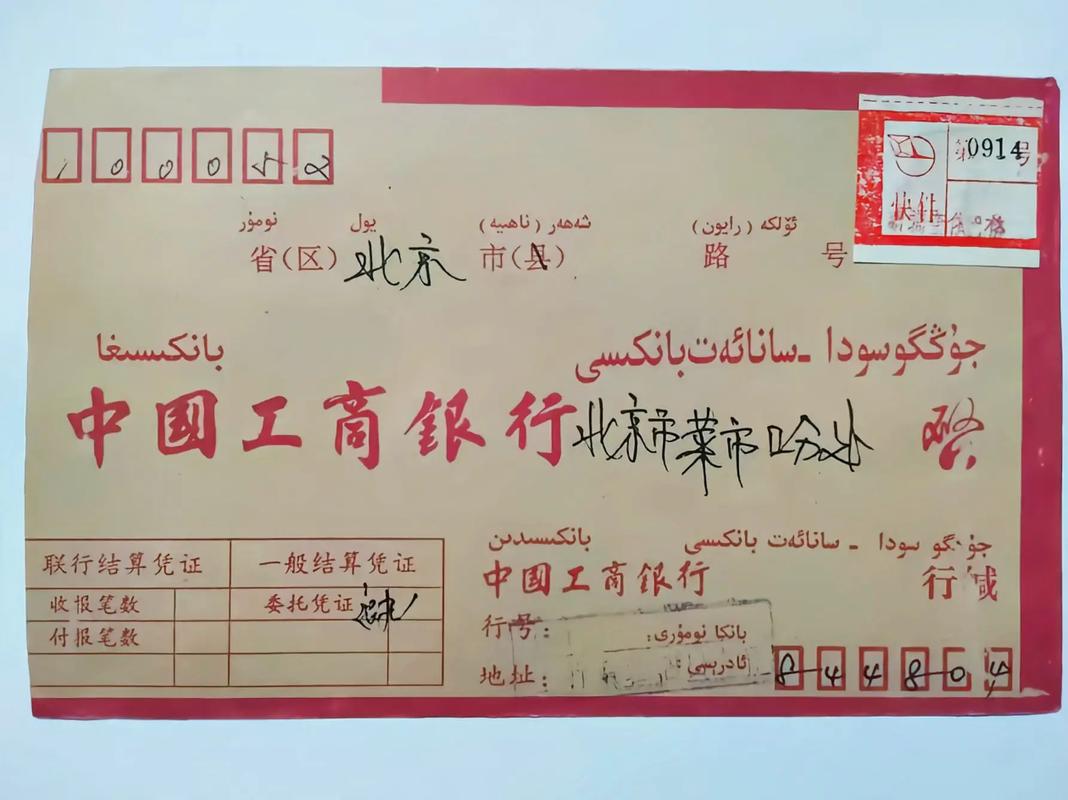 100052
第0914号
快件
نومۇر يول شەھەر (ناھىيە) ئۆلكە (رايون)
省(区)北京市(县) 路 号
جۇڭگو سودا ـ سانائەت بانكىسى بانكىسىغا
中國工商銀行北京市菜市口分办 啓
جۇڭگو سودا ـ سانائەت بانكىسى بانكىسىدىن
中國工商銀行 行缄
联行结算凭证 一般结算凭证
收报笔数 委托凭证
付报笔数
行号: بانكا نومۇرى:
地址: ئادرېسى:
844804